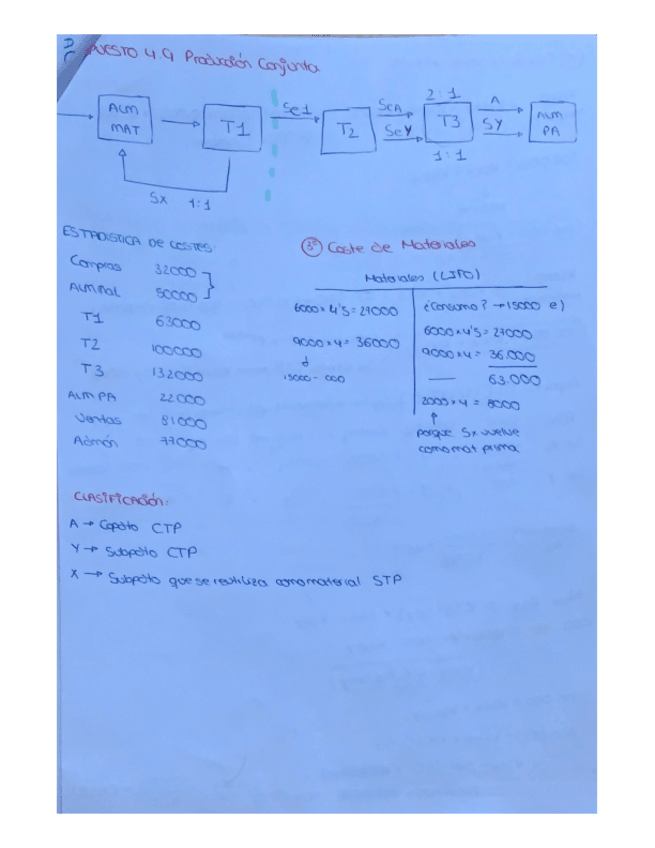 PUESTO 4.9 Producción Conjunta
ALM
MAT
T1
Se1
T2
SeA
SeY
2:1
T3
1:1
A
SY
ALM
PA
SX 1:1
ESTADISTICA DE COSTES:
Compras 32000
ALM Mat 50000
T1 63000
T2 100000
T3 132000
ALM PA 22000
Ventas 81000
Admón 77000
3º Coste de Materiales
Materiales (LIFO)
6000 x 4'5 = 27000
9000 x 4 = 36000
15000 - 000
¿Consumo? → 15000 e)
6000 x 4'5 = 27000
9000 x 4 = 36.000
63.000
2000 x 4 = 8000
porque Sx vuelve
como mat prima
CLASIFICACIÓN:
A → Copdto CTP
Y → Subpdto CTP
X → Subpdto que se reutiliza como material STP